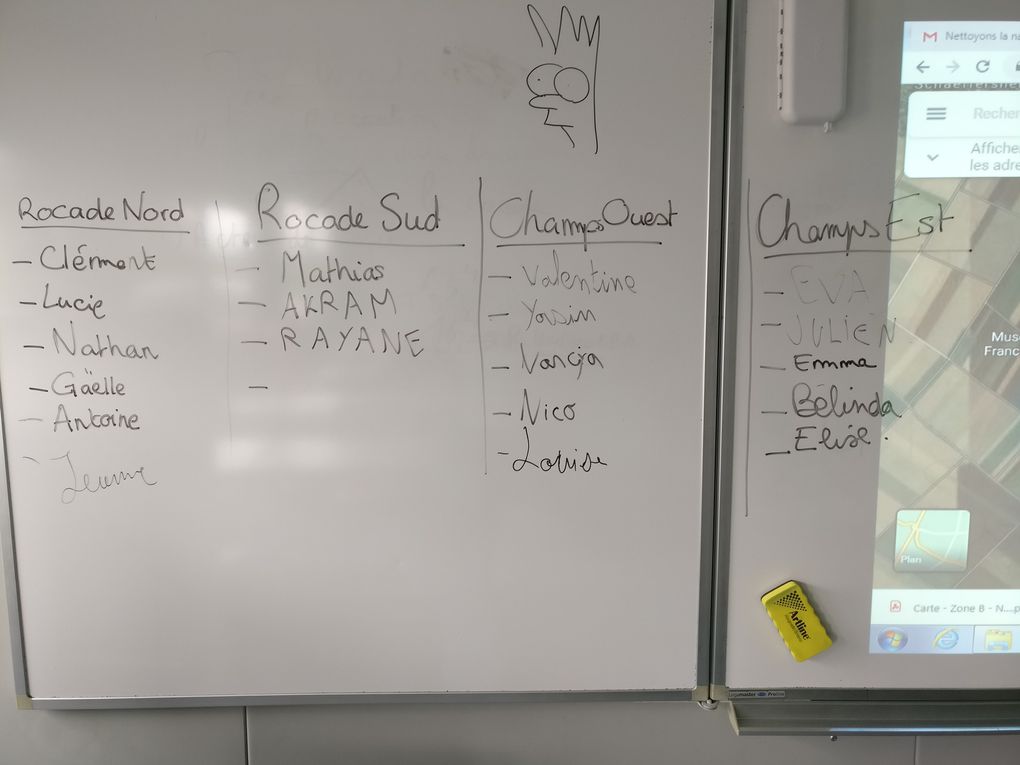 Rocade Nord
- Clément
- Lucie
- Nathan
- Gäelle
- Antoine
Rocade Sud
- Mathias
- AKRAM
- RAYANE
-
Champs Ouest
- Valentine
- Yassin
- Nico
- Louise
Champs Est
- EVA
- JULIEN
- Emma
- Bélinda
- Elise.
Nettoyons la na
Recher
Affiche
les adre
Mus
Franc
Plan
Carte - Zone B - N....p
Artline
legamaster